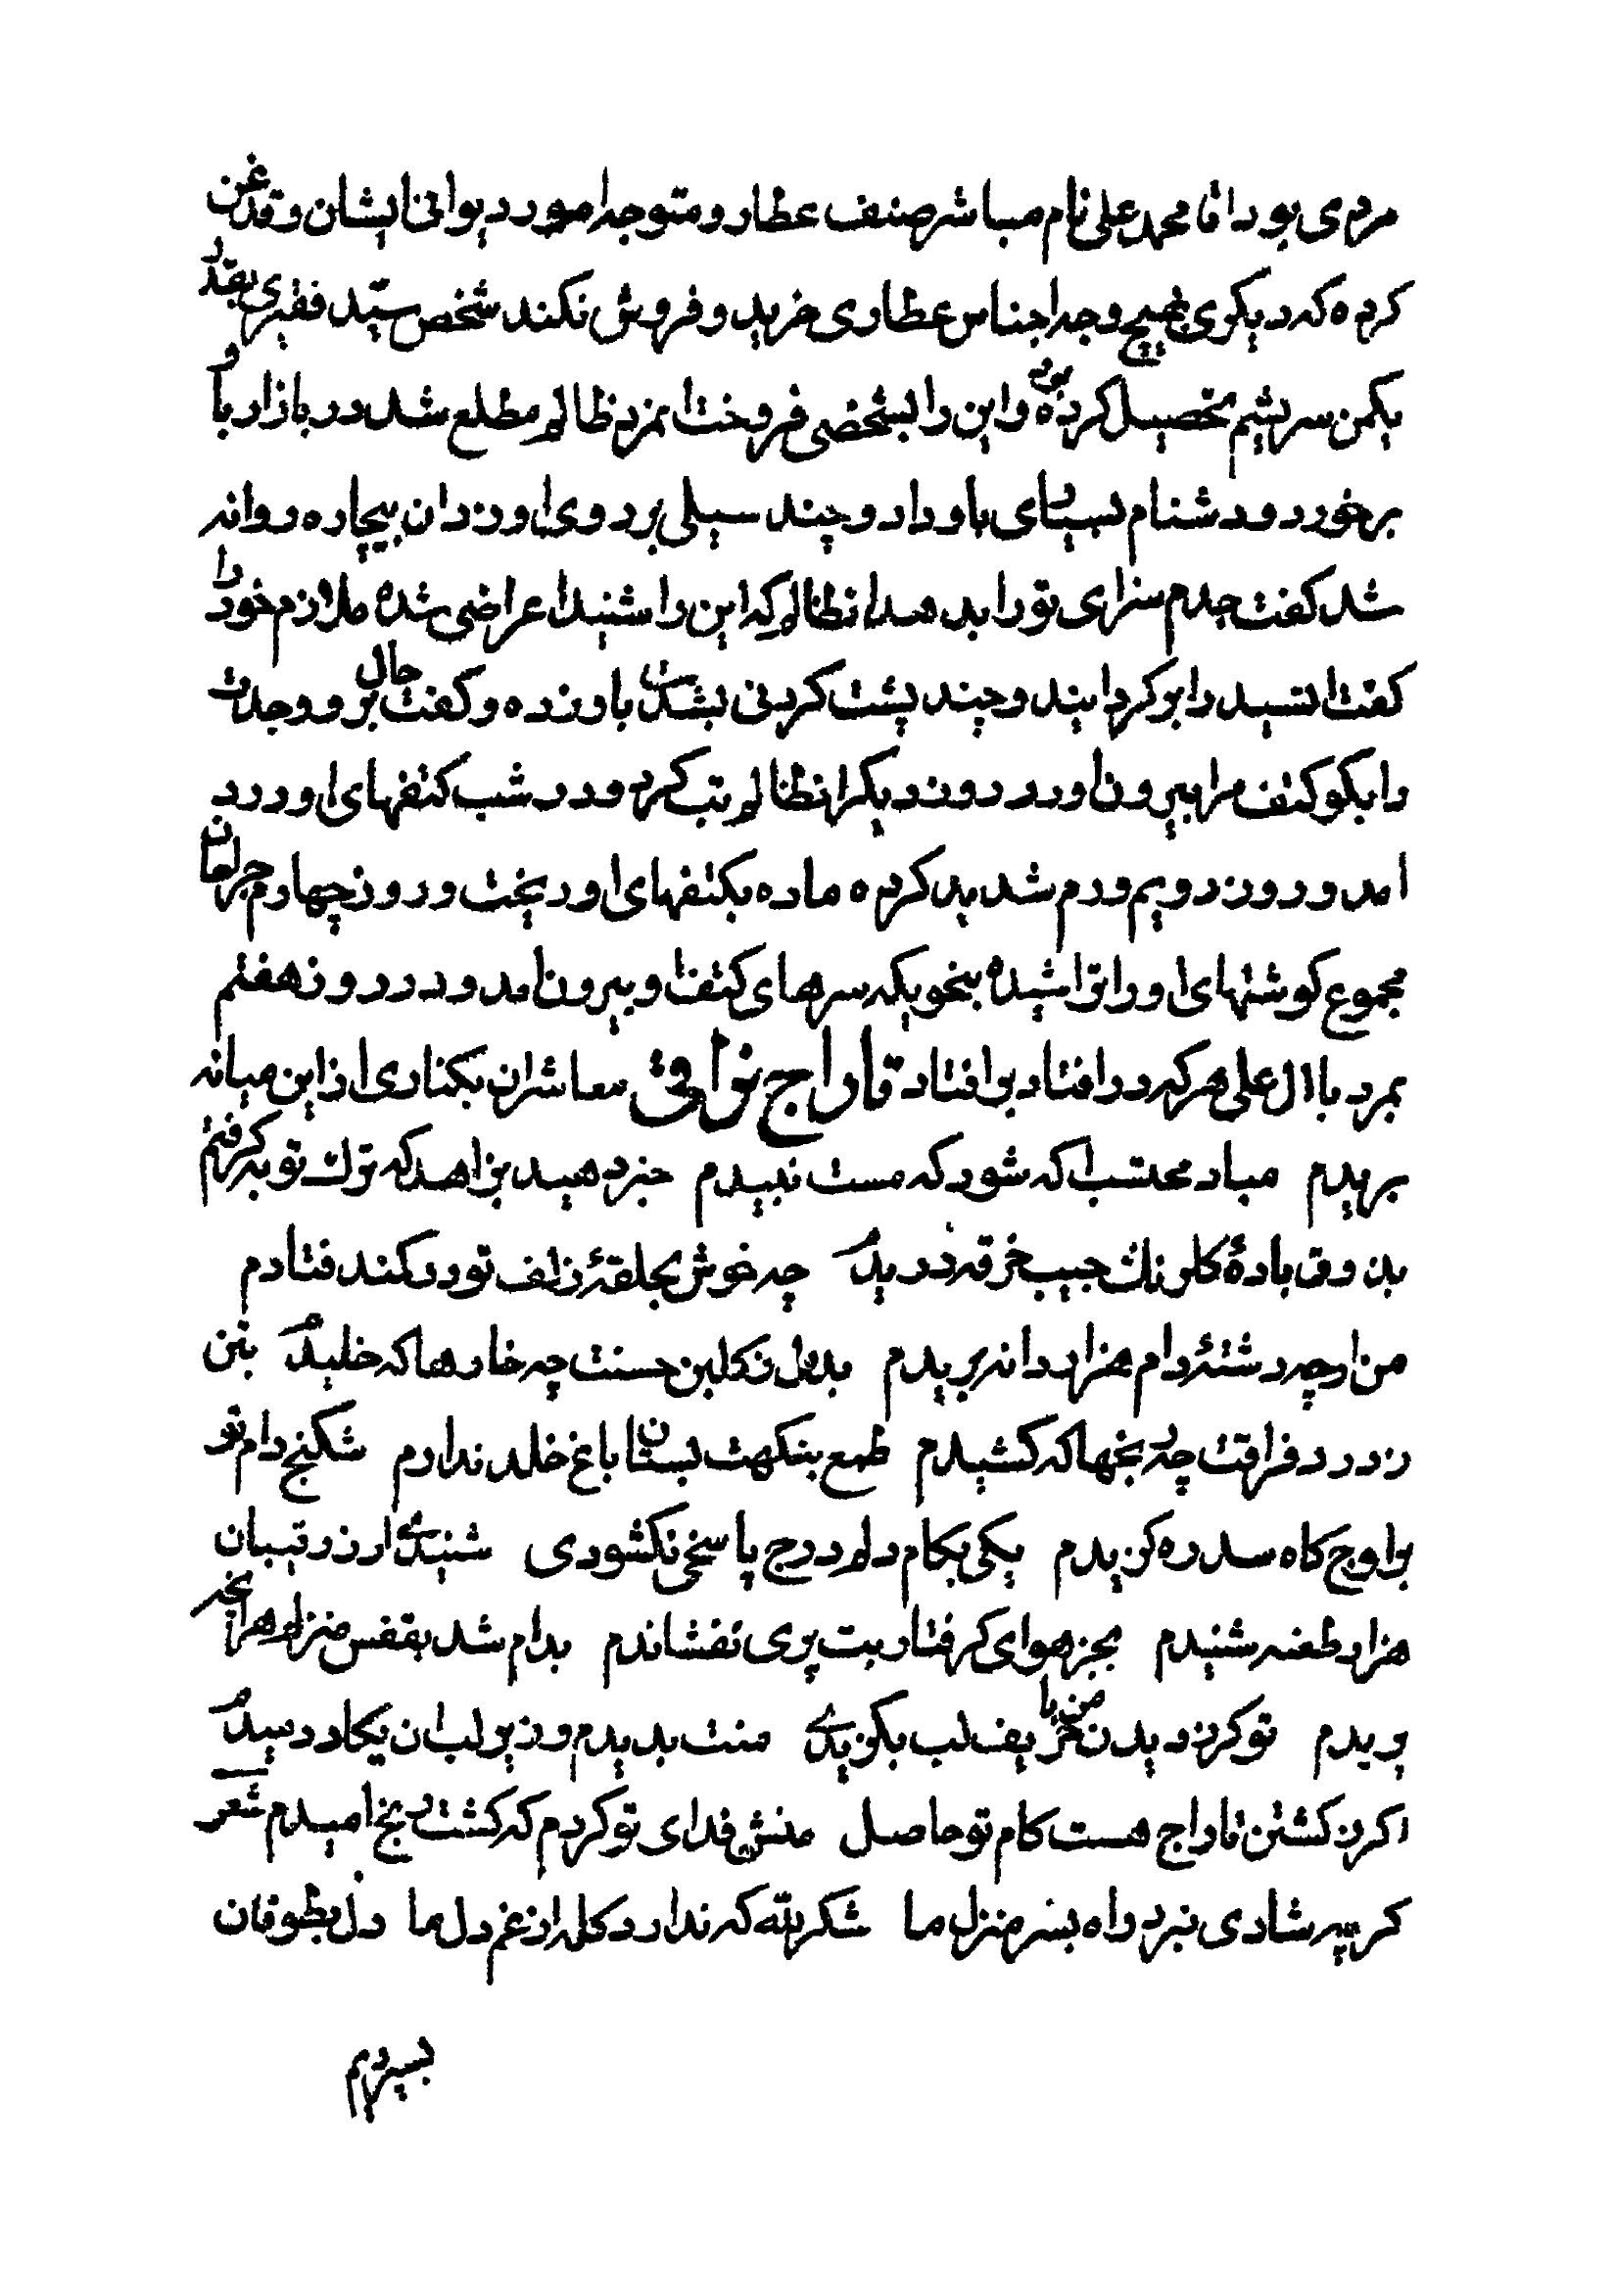 مردی بود اقا محمد علی نام مباشر صنف عطار و متوجه امور دیوانی ایشان و قدغن
کرده که دیگری بهیچ وجه اجناس عطاری خرید و فروش نکند شخص سید فقیری بقدر
یکمن سریشم تحصیل کرده بود و این را بشخصی فروخت انمرد ظالم مطلع شد در بازار با و
برخورد و دشنام بسیاری باو داد و چند سیلی بر روی او زد ان بیچاره روانه
شد گفت جدم سزای تو را بدهد انظالم که این را شنید اعراضی شده ملازم خود را
گفت انسید را برگردانیند و چند پشت گردنی بشدت باو زده و گفت حال برو و جدت
را بگو کتف مرا بیرون اورد روز دیگر انظالم تب کرد و در شب کتفهای او درد
امد و روز دویم ورم شدید کرده ماده بکتفهای او ریخت و روز چهارم جراحان
مجموع گوشتهای او را تراشیده بنحویکه سرهای کتف او بیرون امد و در روز هفتم
بمرد با ال علی هر که درافتاد برافتاد تاراج نراقی معاشران بکناری از این میانه
بریدم مباد محتسب اگه شود که مست نبیدم خبر دهید بزاهد که ترک توبه گرفتم
بذوق باده گلرنگ جیب خرقه دریدم چه خوش بحلقه زلف تو در کمند فتادم
من ارچه رشته دام هزار دانه بریدم بدل ز گلبن حسنت چه خارها که خلیدم بتن
ز درد فراقت چه رنجها که کشیدم طمع بنکهت بستان باغ خلد ندارم شکنج دام تو
بر اوج کاه سدره گزیدم یکی بکام دلم درج پاسخی نگشودی شنیدی ار ز رقیبان
هزار طعنه شنیدم بجز هوای گرفتاریت پری نفشاندم بدام شد بقفس منزلم هر انچه
پریدم تو گر ز دیدن من با حریف لب بگزیدی منت بدیدم و زیر لب ان یکاد دمیدم
اگر ز کشتن تاراج هست کام تو حاصل منش فدای تو کردم که گشت رنج امیدم شعر
گر سپه شادی نبرد راه بسر منزل ما شکر لله که ندارد گله از غم دل ما دل بطوفان
بسپردیم